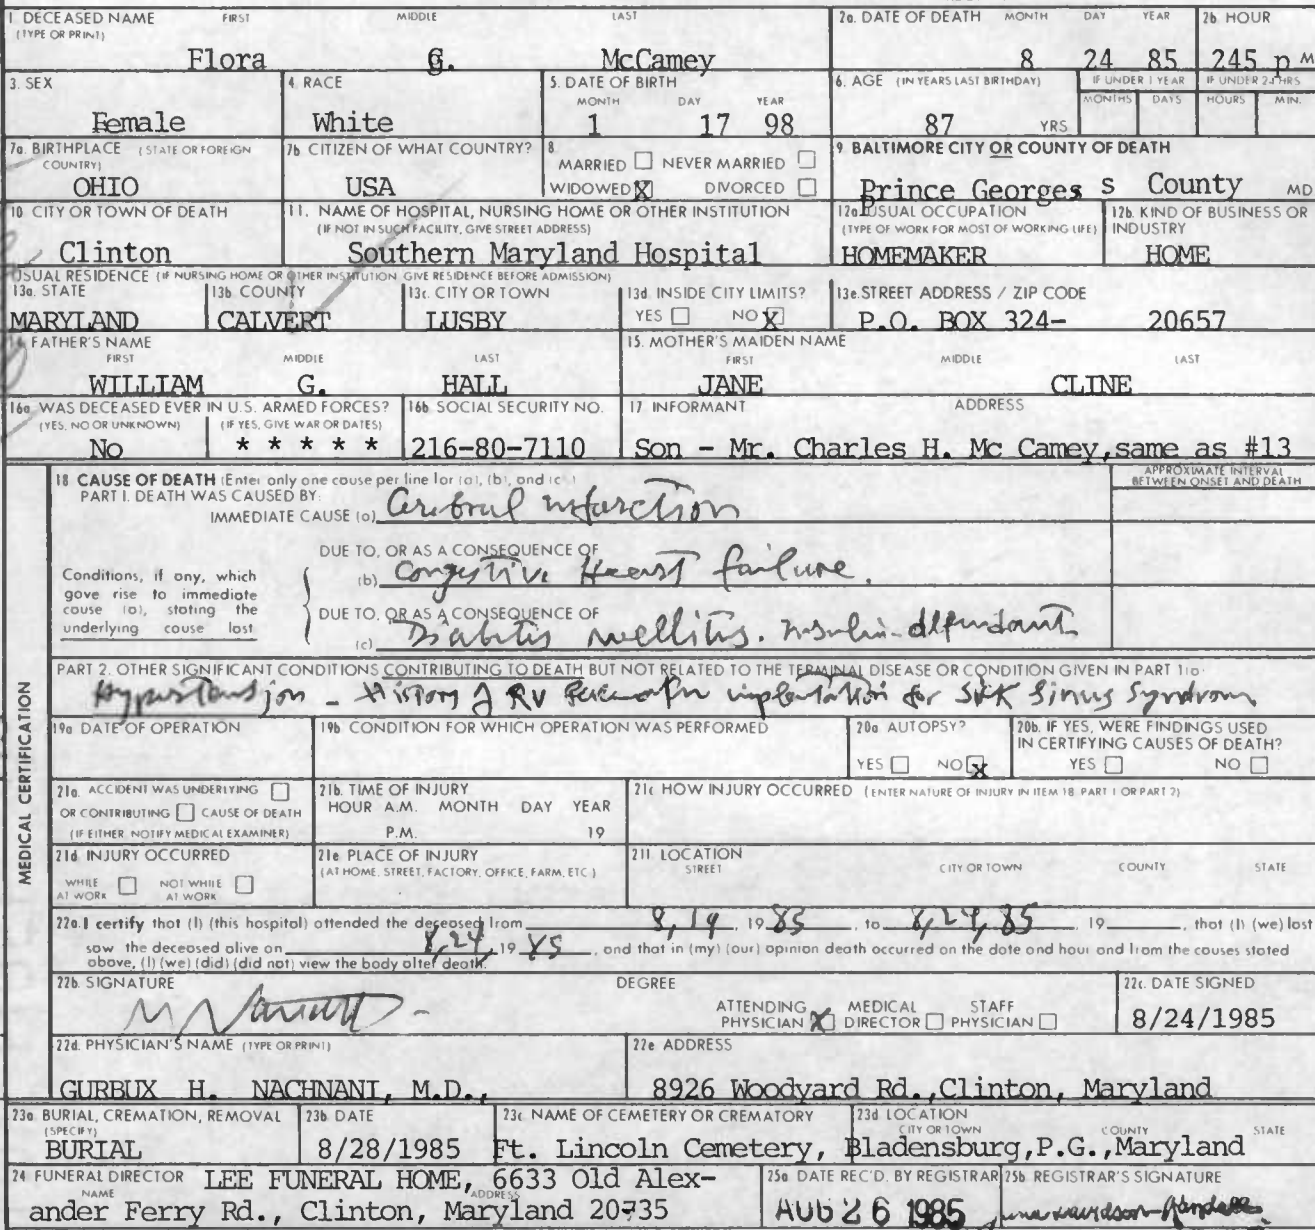 1 DECEASED NAME FIRST MIDDLE LAST
(TYPE OR PRINT)
Flora G. McCamey
2a. DATE OF DEATH MONTH DAY YEAR
8 24 85
2b HOUR
245 p M
3. SEX
Female
4. RACE
White
5. DATE OF BIRTH
MONTH DAY YEAR
1 17 98
6. AGE (IN YEARS LAST BIRTHDAY)
87 YRS
IF UNDER 1 YEAR
MONTHS DAYS
IF UNDER 24 HRS
HOURS MIN.
7a. BIRTHPLACE (STATE OR FOREIGN COUNTRY)
OHIO
7b CITIZEN OF WHAT COUNTRY?
USA
8
MARRIED ☐ NEVER MARRIED ☐
WIDOWED X DIVORCED ☐
9 BALTIMORE CITY OR COUNTY OF DEATH
Prince Georges s County MD
10 CITY OR TOWN OF DEATH
Clinton
11. NAME OF HOSPITAL, NURSING HOME OR OTHER INSTITUTION
(IF NOT IN SUCH FACILITY, GIVE STREET ADDRESS)
Southern Maryland Hospital
12a USUAL OCCUPATION
(TYPE OF WORK FOR MOST OF WORKING LIFE)
HOMEMAKER
12b. KIND OF BUSINESS OR INDUSTRY
HOME
USUAL RESIDENCE (IF NURSING HOME OR OTHER INSTITUTION GIVE RESIDENCE BEFORE ADMISSION)
13a. STATE
MARYLAND
13b COUNTY
CALVERT
13c. CITY OR TOWN
LUSBY
13d INSIDE CITY LIMITS?
YES ☐ NO X
13e. STREET ADDRESS / ZIP CODE
P.O. BOX 324- 20657
14 FATHER'S NAME
FIRST MIDDLE LAST
WILLIAM G. HALL
15. MOTHER'S MAIDEN NAME
FIRST MIDDLE LAST
JANE CLINE
16a WAS DECEASED EVER IN U.S. ARMED FORCES?
(YES, NO OR UNKNOWN) (IF YES, GIVE WAR OR DATES)
No * * * * *
16b SOCIAL SECURITY NO.
216-80-7110
17 INFORMANT ADDRESS
Son - Mr. Charles H. Mc Camey, same as #13
MEDICAL CERTIFICATION
18 CAUSE OF DEATH (Enter only one cause per line for (a), (b), and (c).)
APPROXIMATE INTERVAL BETWEEN ONSET AND DEATH
PART I. DEATH WAS CAUSED BY:
IMMEDIATE CAUSE (a) Cerebral infarction
Conditions, if any, which gave rise to immediate cause (a), stating the underlying cause last
DUE TO, OR AS A CONSEQUENCE OF
(b) Congestive Heart failure.
DUE TO, OR AS A CONSEQUENCE OF
(c) Diabitis mellitus. insulin-dependant
PART 2. OTHER SIGNIFICANT CONDITIONS CONTRIBUTING TO DEATH BUT NOT RELATED TO THE TERMINAL DISEASE OR CONDITION GIVEN IN PART 1(a)
Hypertension - History of RV Pacemaker implantation for Sick Sinus Syndrom
19a DATE OF OPERATION
19b CONDITION FOR WHICH OPERATION WAS PERFORMED
20a AUTOPSY?
YES ☐ NO X
20b. IF YES, WERE FINDINGS USED IN CERTIFYING CAUSES OF DEATH?
YES ☐ NO ☐
21a. ACCIDENT WAS UNDERLYING ☐
OR CONTRIBUTING ☐ CAUSE OF DEATH
(IF EITHER, NOTIFY MEDICAL EXAMINER)
21b. TIME OF INJURY
HOUR A.M. MONTH DAY YEAR
P.M. 19
21c HOW INJURY OCCURRED (ENTER NATURE OF INJURY IN ITEM 18 PART 1 OR PART 2)
21d INJURY OCCURRED
WHILE AT WORK ☐ NOT WHILE AT WORK ☐
21e PLACE OF INJURY
(AT HOME, STREET, FACTORY, OFFICE, FARM, ETC)
21f LOCATION
STREET CITY OR TOWN COUNTY STATE
22a. I certify that (I) (this hospital) attended the deceased from 8,19, 19 85, to 8,24,85 19 , that (I) (we) last
saw the deceased alive on 8,24, 19 85, and that in (my) (our) opinion death occurred on the date and hour and from the causes stated
above, (I) (we) (did) (did not) view the body after death.
22b. SIGNATURE
DEGREE
ATTENDING PHYSICIAN X MEDICAL DIRECTOR ☐ STAFF PHYSICIAN ☐
22c. DATE SIGNED
8/24/1985
22d. PHYSICIAN'S NAME (TYPE OR PRINT)
GURBUX H. NACHNANI, M.D.,
22e ADDRESS
8926 Woodyard Rd., Clinton, Maryland
23a. BURIAL, CREMATION, REMOVAL
(SPECIFY)
BURIAL
23b. DATE
8/28/1985
23c. NAME OF CEMETERY OR CREMATORY
Ft. Lincoln Cemetery,
23d LOCATION
CITY OR TOWN COUNTY STATE
Bladensburg, P.G., Maryland
24 FUNERAL DIRECTOR LEE FUNERAL HOME, 6633 Old Alex-
NAME ADDRESS
ander Ferry Rd., Clinton, Maryland 20735
25a DATE REC'D. BY REGISTRAR
AUG 26 1985
25b REGISTRAR'S SIGNATURE